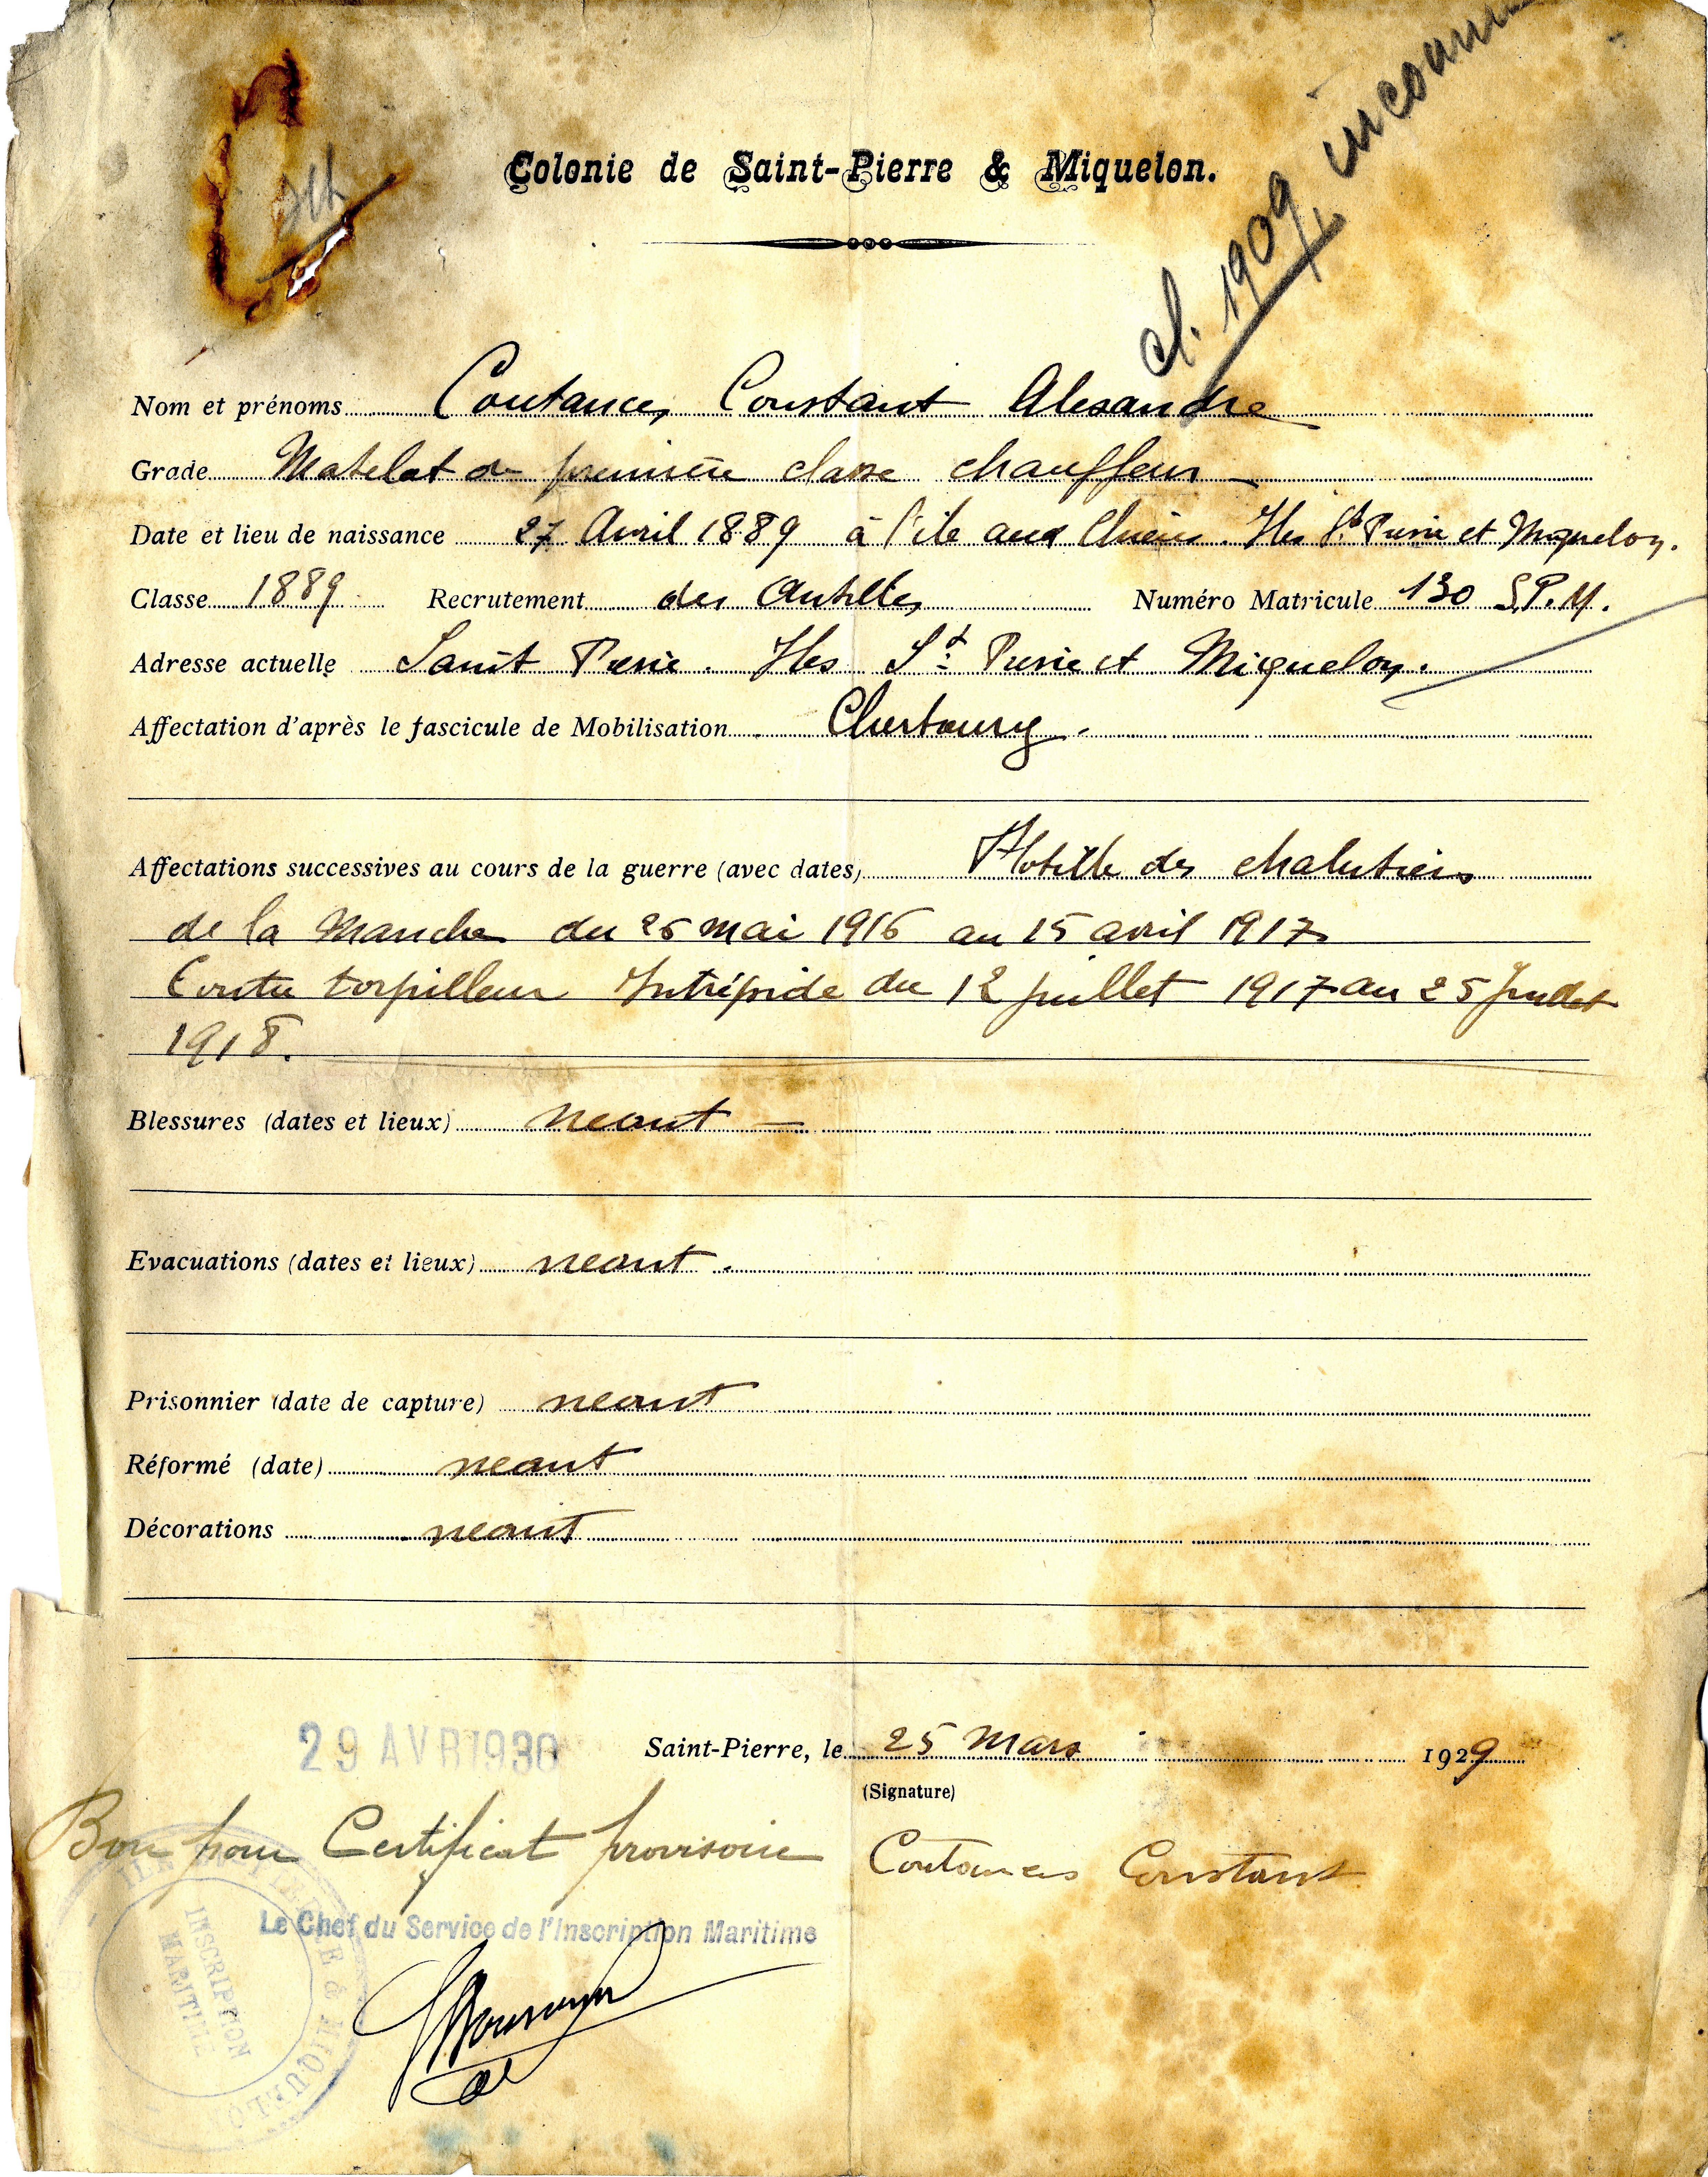 cl. 1909 inconnu
Colonie de Saint-Pierre & Miquelon.
Nom et prénoms Coutances Constant Alexandre
Grade Matelot de première classe chauffeur
Date et lieu de naissance 27 Avril 1889 à l'ile aux Chiens. Iles St Pierre et Miquelon.
Classe 1889 Recrutement des Antilles Numéro Matricule 130 S.P.M.
Adresse actuelle Saint Pierre. Iles St Pierre et Miquelon.
Affectation d'après le fascicule de Mobilisation Cherbourg.
Affectations successives au cours de la guerre (avec dates) Flotille des chalutiers
de la Manche du 25 mai 1916 au 15 avril 1917
Contre torpilleur Intrépide du 12 juillet 1917 au 25 Juillet
1918.
Blessures (dates et lieux) neant —
Evacuations (dates et lieux) neant.
Prisonnier (date de capture) neant
Réformé (date) neant
Décorations neant
29 AVR 1930
Saint-Pierre, le 25 Mars 1929
(Signature)
Bon pour Certificat provisoire
Coutances Constant
Le Chef du Service de l'Inscription Maritime
INSCRIPTION
MARITIME